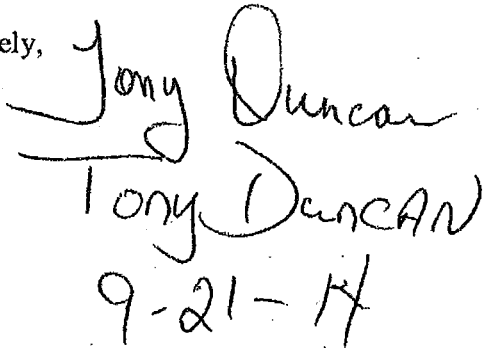 ely,
Tony Duncan
Tony DunCAN
9-21-14